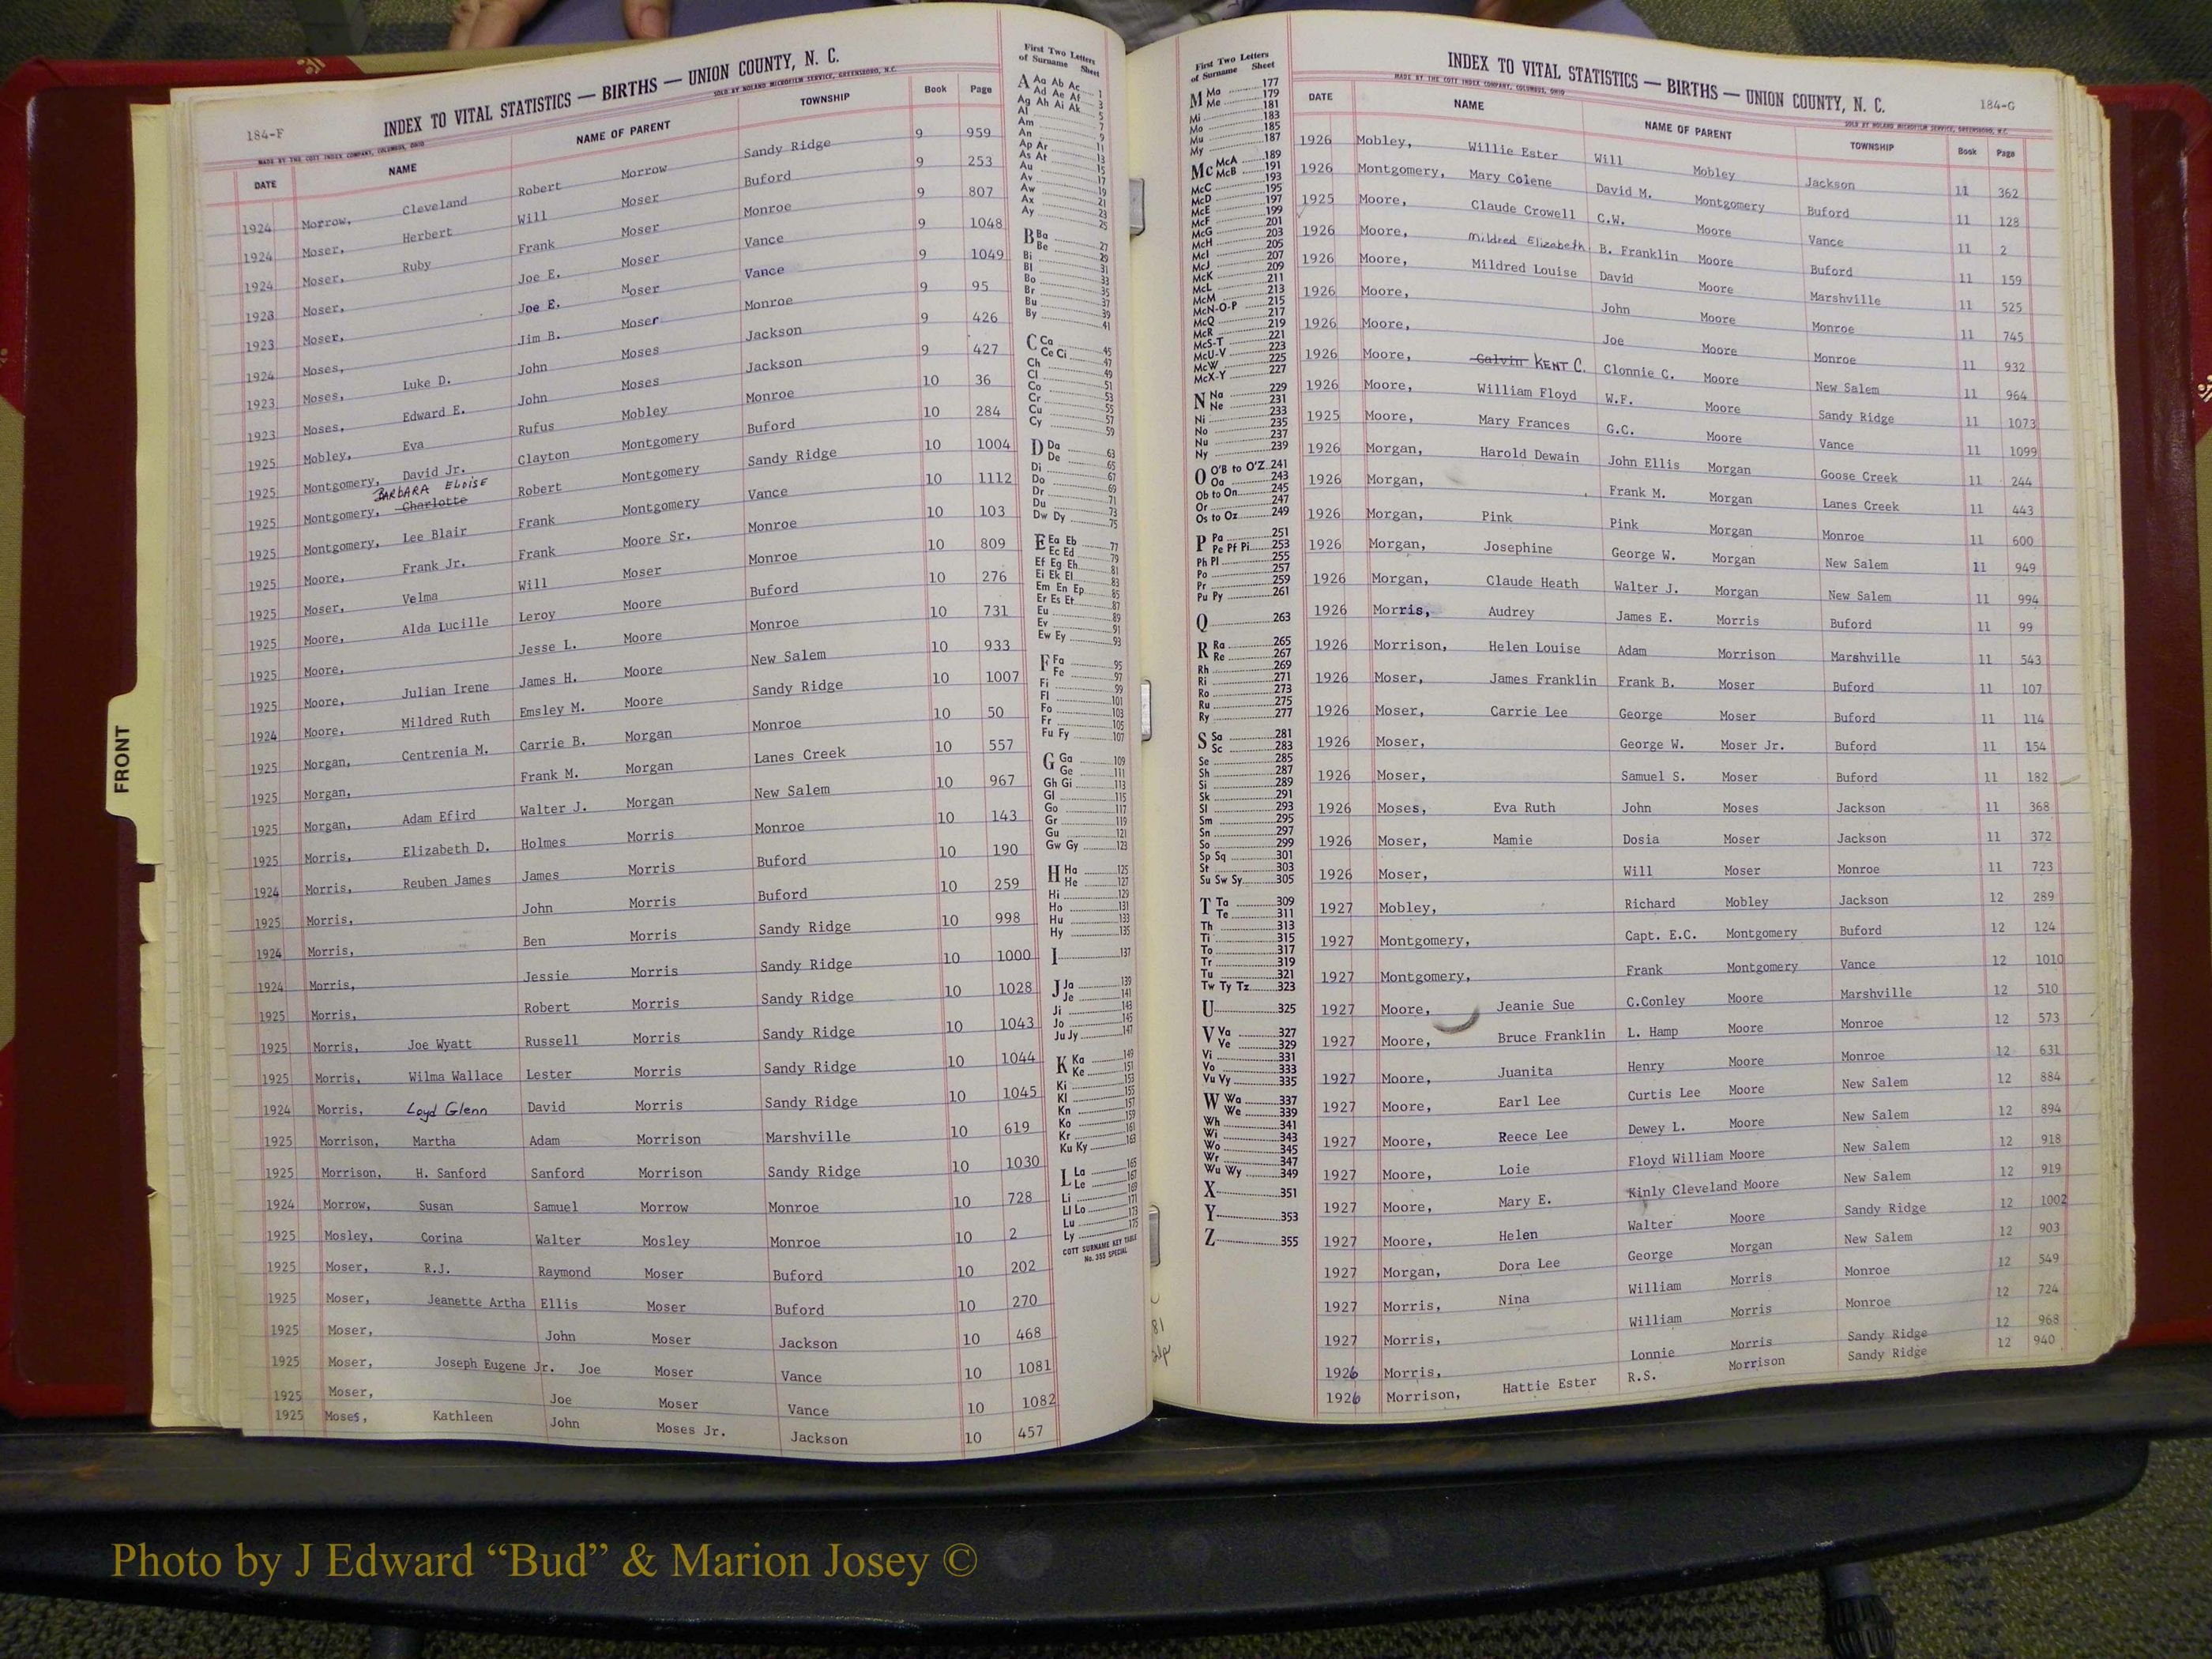 184-F
INDEX TO VITAL STATISTICS — BIRTHS — UNION COUNTY, N. C.
MADE BY THE COTT INDEX COMPANY, COLUMBUS, OHIO SOLD BY NOLAND MICROFILM SERVICE, GREENSBORO, N.C.
DATE NAME NAME OF PARENT TOWNSHIP Book Page
1924 Morrow, Cleveland Robert Morrow Sandy Ridge 9 959
1924 Moser, Herbert Will Moser Buford 9 253
1924 Moser, Ruby Frank Moser Monroe 9 807
1923 Moser, Joe E. Moser Vance 9 1048
1923 Moser, Joe E. Moser Vance 9 1049
1924 Moses, Jim B. Moser Monroe 9 95
1923 Moses, Luke D. John Moses Jackson 9 426
1923 Moses, Edward E. John Moses Jackson 9 427
1925 Mobley, Eva Rufus Mobley Monroe 10 36
1925 Montgomery, David Jr. Clayton Montgomery Buford 10 284
BARBARA ELOISE
1925 Montgomery, Charlotte Robert Montgomery Sandy Ridge 10 1004
1925 Montgomery, Lee Blair Frank Montgomery Vance 10 1112
1925 Moore, Frank Jr. Frank Moore Sr. Monroe 10 103
1925 Moser, Velma Will Moser Monroe 10 809
1925 Moore, Alda Lucille Leroy Moore Buford 10 276
1925 Moore, Jesse L. Moore Monroe 10 731
1925 Moore, Julian Irene James H. Moore New Salem 10 933
1924 Moore, Mildred Ruth Emsley M. Moore Sandy Ridge 10 1007
1925 Morgan, Centrenia M. Carrie B. Morgan Monroe 10 50
1925 Morgan, Frank M. Morgan Lanes Creek 10 557
1925 Morgan, Adam Efird Walter J. Morgan New Salem 10 967
1925 Morris, Elizabeth D. Holmes Morris Monroe 10 143
1924 Morris, Reuben James James Morris Buford 10 190
1925 Morris, John Morris Buford 10 259
1924 Morris, Ben Morris Sandy Ridge 10 998
1924 Morris, Jessie Morris Sandy Ridge 10 1000
1925 Morris, Robert Morris Sandy Ridge 10 1028
1925 Morris, Joe Wyatt Russell Morris Sandy Ridge 10 1043
1925 Morris, Wilma Wallace Lester Morris Sandy Ridge 10 1044
1924 Morris, Loyd Glenn David Morris Sandy Ridge 10 1045
1925 Morrison, Martha Adam Morrison Marshville 10 619
1925 Morrison, H. Sanford Sanford Morrison Sandy Ridge 10 1030
1924 Morrow, Susan Samuel Morrow Monroe 10 728
1925 Mosley, Corina Walter Mosley Monroe 10 2
1925 Moser, R.J. Raymond Moser Buford 10 202
1925 Moser, Jeanette Artha Ellis Moser Buford 10 270
1925 Moser, John Moser Jackson 10 468
1925 Moser, Joseph Eugene Jr. Joe Moser Vance 10 1081
1925 Moser, Joe Moser Vance 10 1082
1925 Moses, Kathleen John Moses Jr. Jackson 10 457
FRONT
First Two Letters
of Surname Sheet
A Aa Ab Ac 1
Ad Ae Af 3
Ag Ah Ai Ak 5
Al 7
Am 9
An 11
Ap Ar 13
As At 15
Au 17
Av 19
Aw 21
Ax 23
Ay 25
B Ba 27
Be 29
Bi 31
Bl 33
Bo 35
Br 37
Bu 39
By 41
C Ca 45
Ce Ci 47
Ch 49
Cl 51
Co 53
Cr 55
Cu 57
Cy 59
D Da 63
De 65
Di 67
Do 69
Dr 71
Du 73
Dw Dy 75
E Ea Eb 77
Ec Ed 79
Ef Eg Eh 81
Ei Ek El 83
Em En Ep 85
Er Es Et 87
Eu 89
Ev 91
Ew Ey 93
F Fa 95
Fe 97
Fi 99
Fl 101
Fo 103
Fr 105
Fu Fy 107
G Ga 109
Ge 111
Gh Gi 113
Gl 115
Go 117
Gr 119
Gu 121
Gw Gy 123
H Ha 125
He 127
Hi 129
Ho 131
Hu 133
Hy 135
I 137
J Ja 139
Je 141
Ji 143
Jo 145
Ju Jy 147
K Ka 149
Ke 151
Ki 153
Kl 155
Kn 157
Ko 159
Kr 161
Ku Ky 163
L La 165
Le 167
Li 169
Ll Lo 171
Lu 173
Ly 175
COTT SURNAME KEY TABLE
No. 355 SPECIAL
First Two Letters
of Surname Sheet
M Ma 177
Me 179
Mi 181
Mo 183
Mu 185
My 187
Mc McA 189
McB 191
McC 193
McD 195
McE 197
McF 199
McG 201
McH 203
McI 205
McJ 207
McK 209
McL 211
McM 213
McN-O-P 215
McQ 217
McR 219
McS-T 221
McU-V 223
McW 225
McX-Y 227
N Na 229
Ne 231
Ni 233
No 235
Nu 237
Ny 239
O O'B to O'Z 241
Oa 243
Ob to On 245
Or 247
Os to Oz 249
P Pa 251
Pe Pf Pi 253
Ph Pl 255
Po 257
Pr 259
Pu Py 261
Q 263
R Ra 265
Re 267
Rh 269
Ri 271
Ro 273
Ru 275
Ry 277
S Sa 281
Sc 283
Se 285
Sh 287
Si 289
Sk 291
Sl 293
Sm 295
Sn 297
So 299
Sp Sq 301
St 303
Su Sw Sy 305
T Ta 309
Te 311
Th 313
Ti 315
To 317
Tr 319
Tu 321
Tw Ty Tz 323
U 325
V Va 327
Ve 329
Vi 331
Vo 333
Vu Vy 335
W Wa 337
We 339
Wh 341
Wi 343
Wo 345
Wr 347
Wu Wy 349
X 351
Y 353
Z 355
INDEX TO VITAL STATISTICS — BIRTHS — UNION COUNTY, N. C.
184-G
MADE BY THE COTT INDEX COMPANY, COLUMBUS, OHIO SOLD BY NOLAND MICROFILM SERVICE, GREENSBORO, N.C.
DATE NAME NAME OF PARENT TOWNSHIP Book Page
1926 Mobley, Willie Ester Will Mobley Jackson 11 362
1926 Montgomery, Mary Colene David M. Montgomery Buford 11 128
1925 Moore, Claude Crowell C.W. Moore Vance 11 2
1926 Moore, Mildred Elizabeth B. Franklin Moore Buford 11 159
1926 Moore, Mildred Louise David Moore Marshville 11 525
1926 Moore, John Moore Monroe 11 745
1926 Moore, Joe Moore Monroe 11 932
1926 Moore, Calvin KENT C. Clonnie C. Moore New Salem 11 964
1926 Moore, William Floyd W.F. Moore Sandy Ridge 11 1073
1925 Moore, Mary Frances G.C. Moore Vance 11 1099
1926 Morgan, Harold Dewain John Ellis Morgan Goose Creek 11 244
1926 Morgan, Frank M. Morgan Lanes Creek 11 443
1926 Morgan, Pink Pink Morgan Monroe 11 600
1926 Morgan, Josephine George W. Morgan New Salem 11 949
1926 Morgan, Claude Heath Walter J. Morgan New Salem 11 994
1926 Morris, Audrey James E. Morris Buford 11 99
1926 Morrison, Helen Louise Adam Morrison Marshville 11 543
1926 Moser, James Franklin Frank B. Moser Buford 11 107
1926 Moser, Carrie Lee George Moser Buford 11 114
1926 Moser, George W. Moser Jr. Buford 11 154
1926 Moser, Samuel S. Moser Buford 11 182
1926 Moses, Eva Ruth John Moses Jackson 11 368
1926 Moser, Mamie Dosia Moser Jackson 11 372
1926 Moser, Will Moser Monroe 11 723
1927 Mobley, Richard Mobley Jackson 12 289
1927 Montgomery, Capt. E.C. Montgomery Buford 12 124
1927 Montgomery, Frank Montgomery Vance 12 1010
1927 Moore, Jeanie Sue C.Conley Moore Marshville 12 510
1927 Moore, Bruce Franklin L. Hamp Moore Monroe 12 573
1927 Moore, Juanita Henry Moore Monroe 12 631
1927 Moore, Earl Lee Curtis Lee Moore New Salem 12 884
1927 Moore, Reece Lee Dewey L. Moore New Salem 12 894
1927 Moore, Loie Floyd William Moore New Salem 12 918
1927 Moore, Mary E. Kinly Cleveland Moore New Salem 12 919
1927 Moore, Helen Walter Moore Sandy Ridge 12 1002
1927 Morgan, Dora Lee George Morgan New Salem 12 903
1927 Morris, Nina William Morris Monroe 12 549
1927 Morris, William Morris Monroe 12 724
1926 Morris, Lonnie Morris Sandy Ridge 12 968
1926 Morrison, Hattie Ester R.S. Morrison Sandy Ridge 12 940
81
Photo by J Edward “Bud” & Marion Josey ©